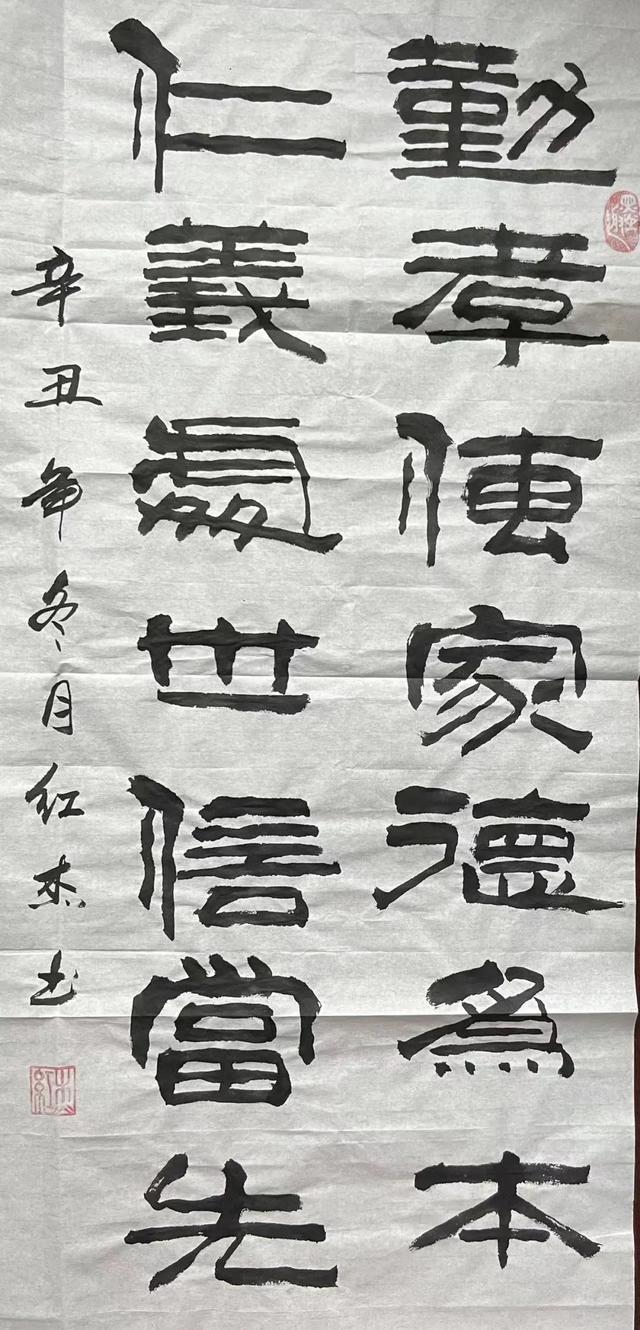 勤孝便家德為本
仁義處世信當先
辛丑年冬月红杰书